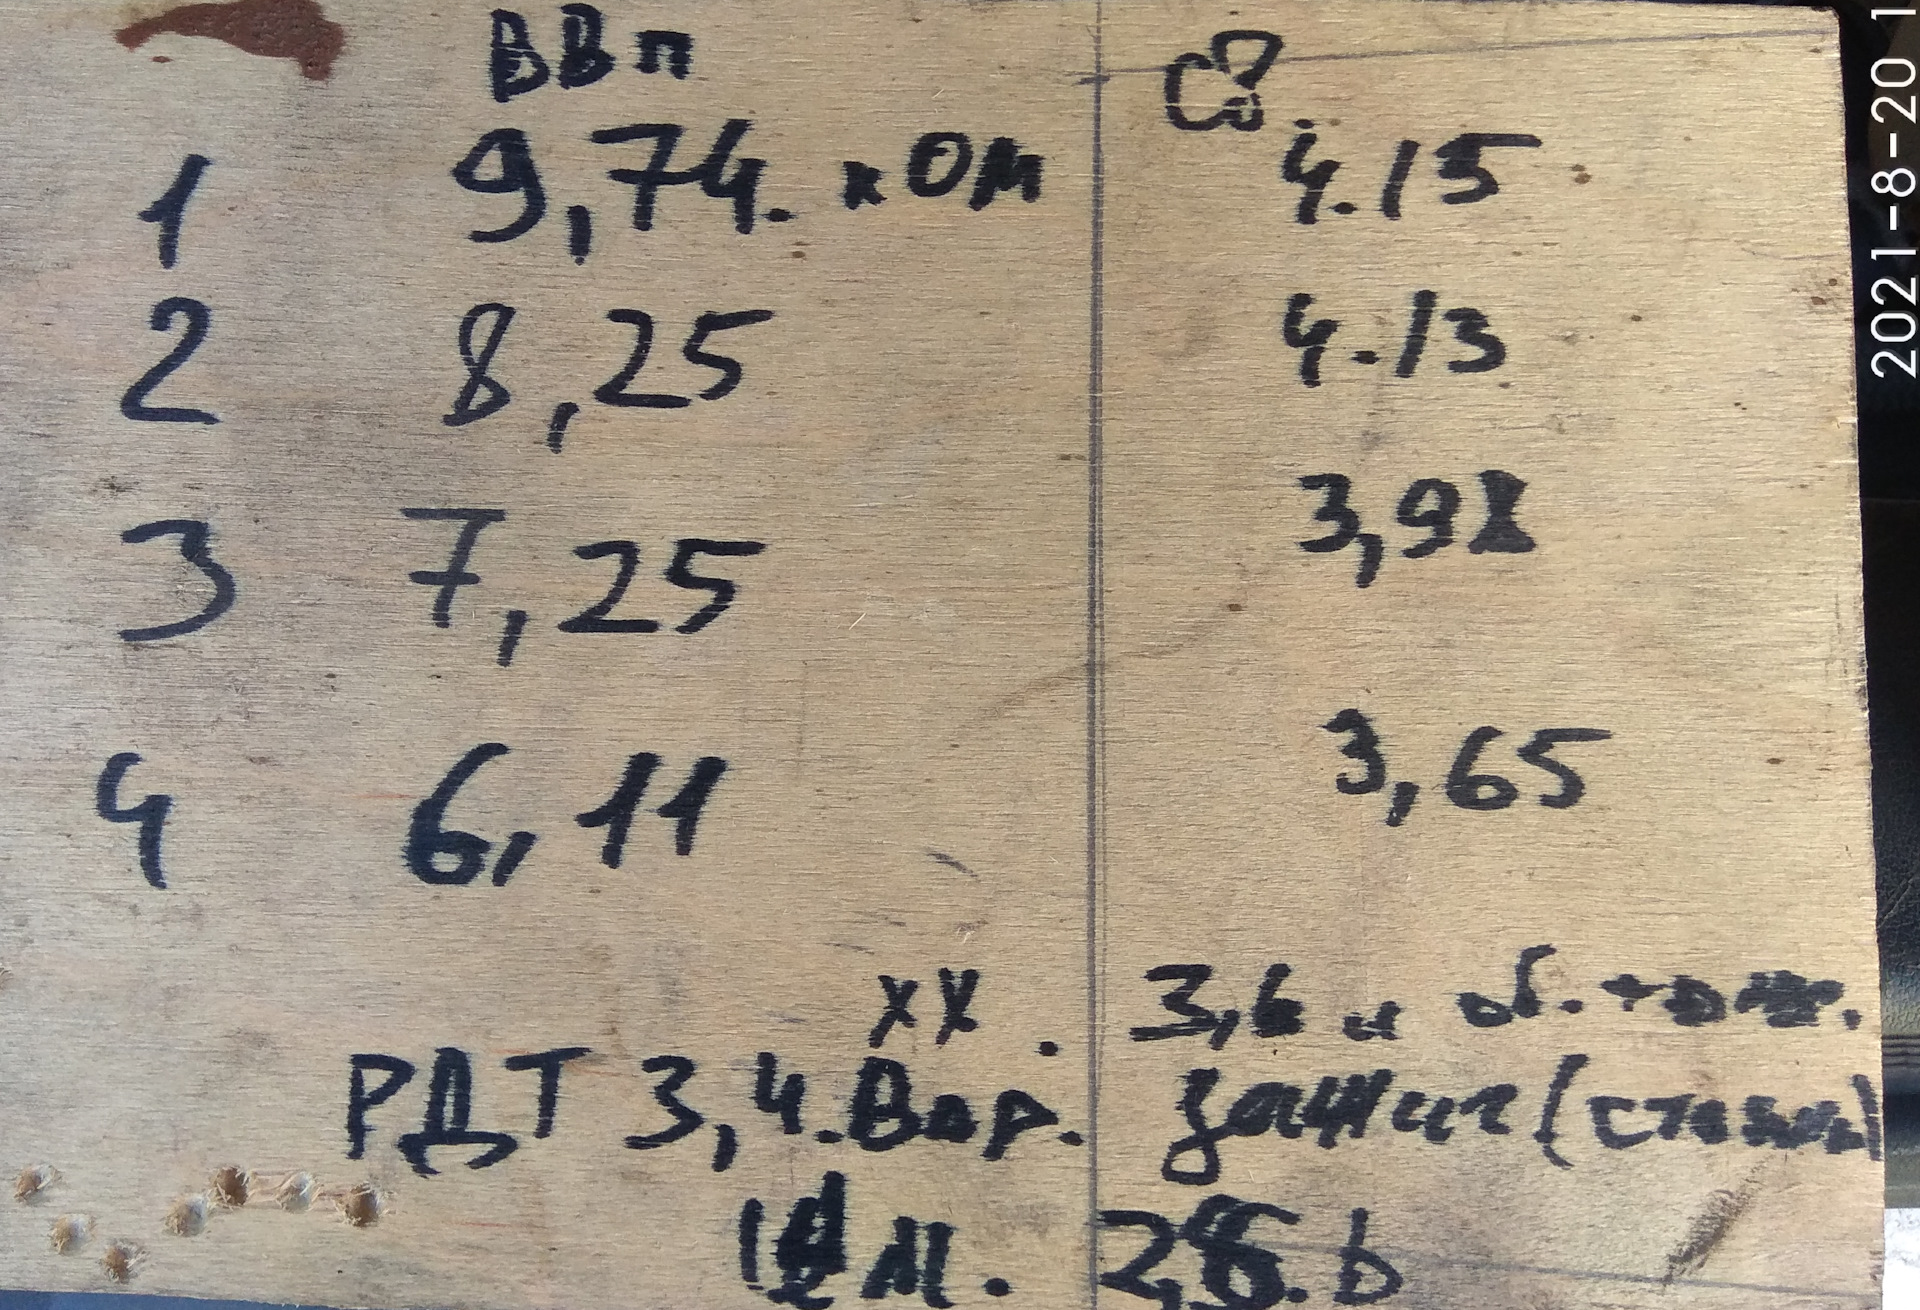 ВВП СО
1 9,74. кОм 4.15
2 8,25 4.13
3 7,25 3,98
4 6,11 3,65
ХХ. 3,6 и об.
РДТ 3,4. Вар. зажиг (
м. в
2021-8-20 1